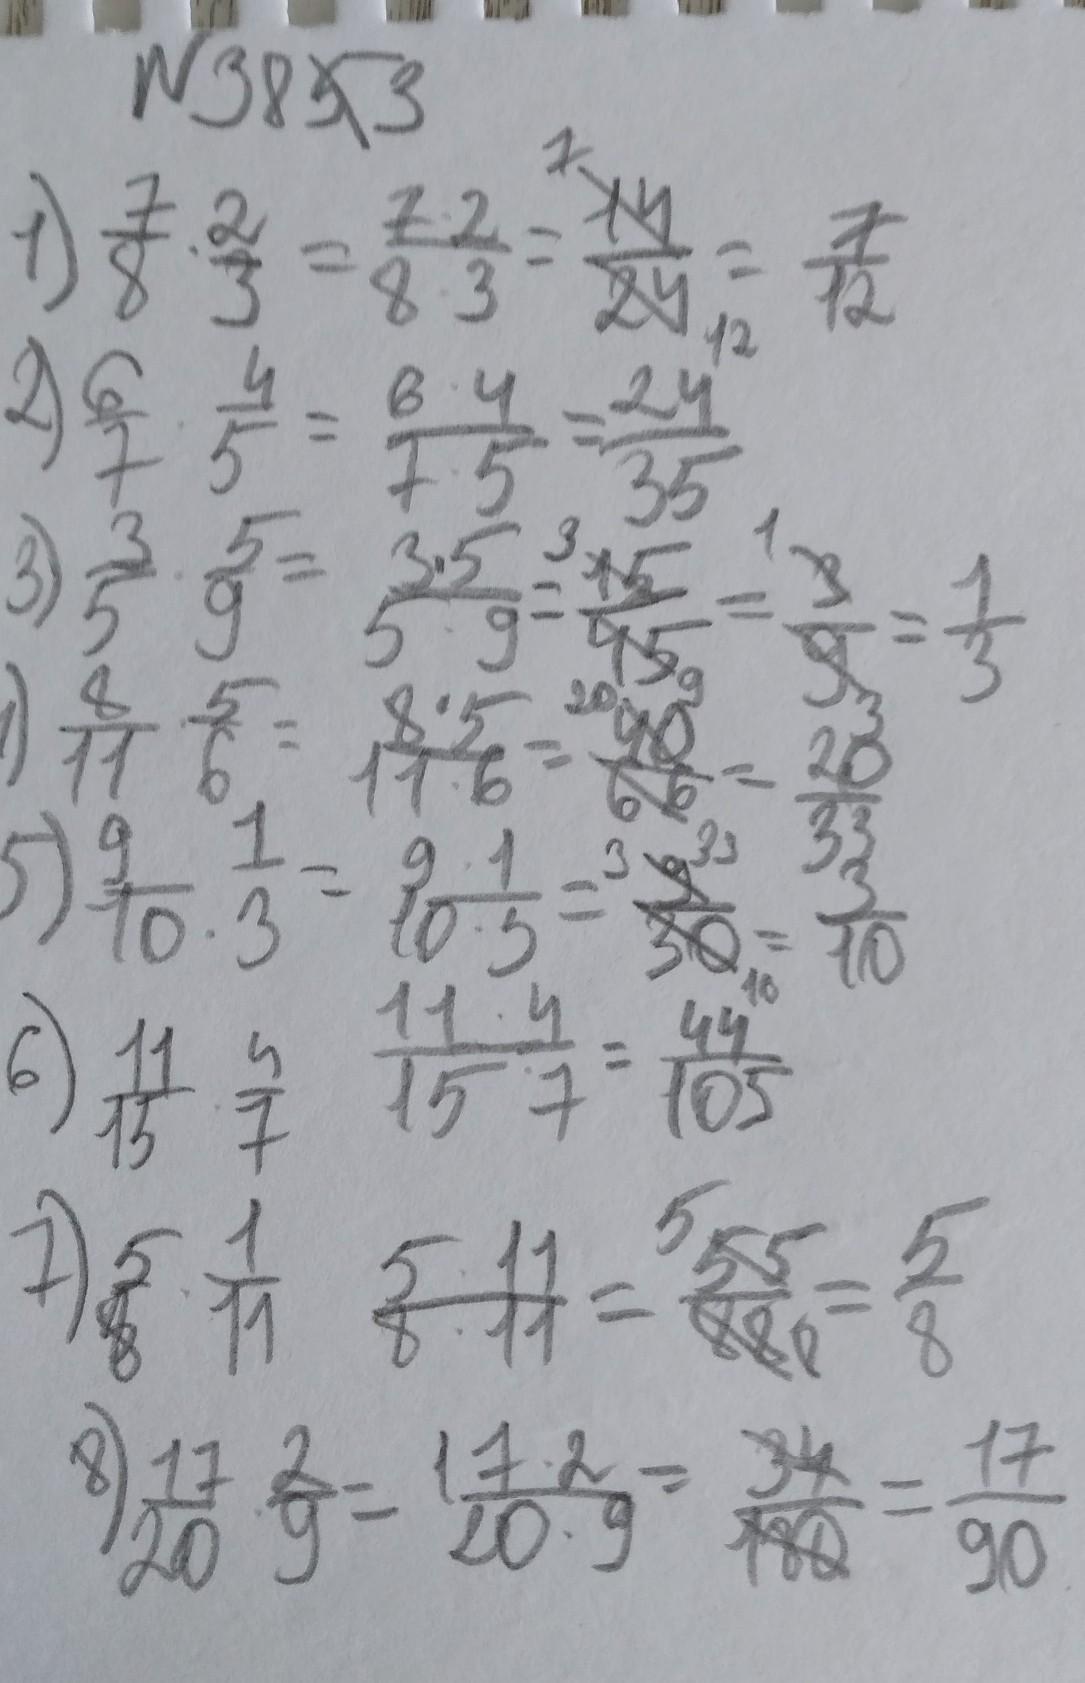 N 385 3
1) 7/8 · 2/3 = 7·2/8·3 = 7 14/24 12 = 7/12
2) 6/7 · 4/5 = 6·4/7·5 = 24/35
3) 3/5 · 5/9 = 3·5/5·9 = 3 15/45 9 = 1 3/9 3 = 1/3
8/11 · 5/6 = 8·5/11·6 = 20 40/66 33 = 20/33
5) 9/10 · 1/3 = 9·1/10·3 = 3 9/30 10 = 3/10
6) 11/15 · 4/7 11·4/15·7 = 44/105
7) 5/8 · 1/11 5·11/8·11 = 5 55/88 8 = 5/8
8) 17/20 · 2/9 = 17·2/20·9 = 34/180 = 17/90